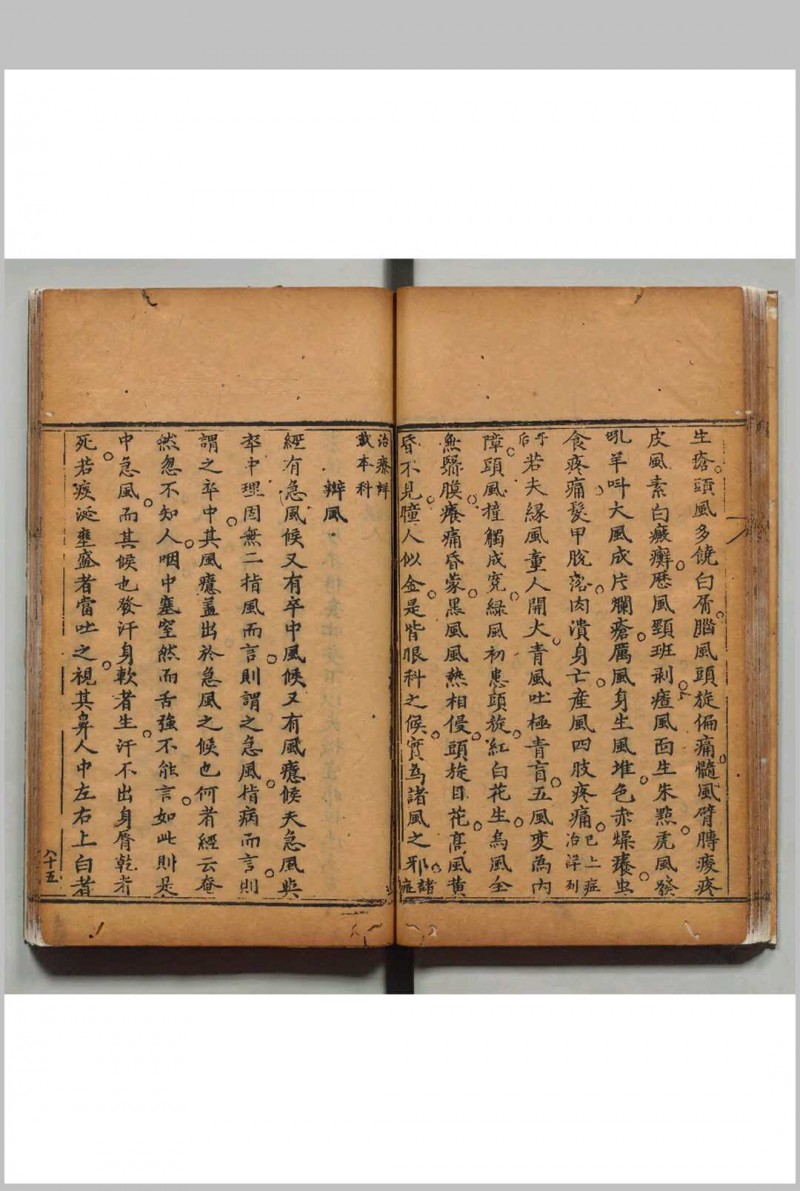 生瘡頭風多饒白屑腦風頭旋偏痛髓風臂膊痠疼
皮風紊白癜癬歷風頸班剥瘂風面生朱㸃虎風發
吼羊呌大風成片爛瘡厲風身生風堆色赤燥癢虫
食疼痛髮甲脫落肉潰身亡産風四肢疼痛巳上症治洋列
于后若夫緣風童人開大青風吐極青盲五風変為内
障頭風撞觸成寃緑風初患頭旋紅白花生烏風全
無翳膜癢痛昏蒙黒風風熱相侵頭旋目花髙風黄
昏不見瞳人似金是皆眼科之候實為諸風之邪諸症
治療詳載本科
辯風
經有急風候又有卒中風候又有風癔候夫急風與
卒中理固無二指風而言則謂之急風指病而言則
謂之卒中其風癔葢出於急風之候也何者經云奄
然忽不知人咽中塞窒然而舌強不能言如此則是
中急風而其候也發汗身軟者生汗不出身唇乾者
死若痰涎壅盛者當吐之視其鼻人中左右上白者
八十五